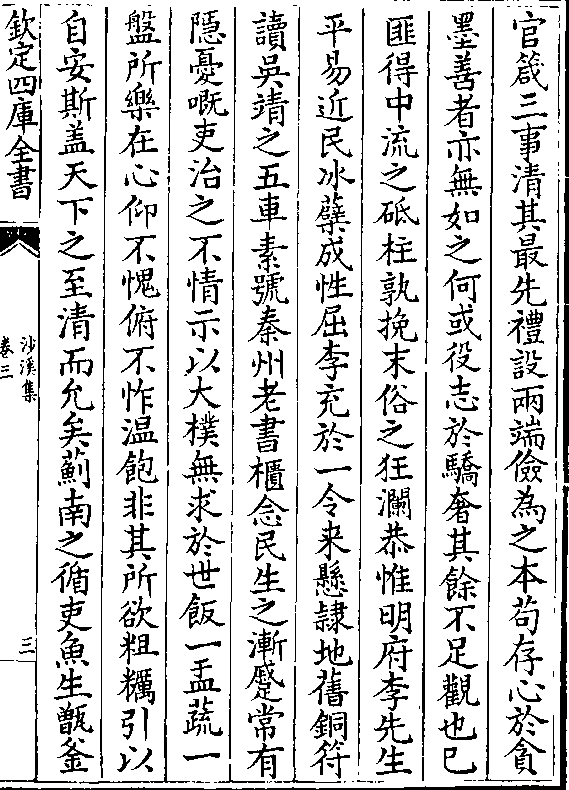 官箴三事清其最先禮設兩端儉為之本苟存心於貪
墨善者亦無如之何或役志於驕奢其餘不足觀也已
匪得中流之砥柱孰挽末俗之狂瀾恭惟明府李先生
平易近民冰蘖成性屈李充於一令来懸隷地舊銅符
讀吳靖之五車素號秦州老書櫃念民生之漸蹙常有
隱憂嘅吏治之不情示以大樸無求於世飯一盂蔬一
盤所樂在心仰不愧俯不怍温飽非其所欲粗糲引以
自安斯盖天下之至清而允矣薊南之循吏魚生甑釜
欽定四庫全書
沙溪集
卷三
三